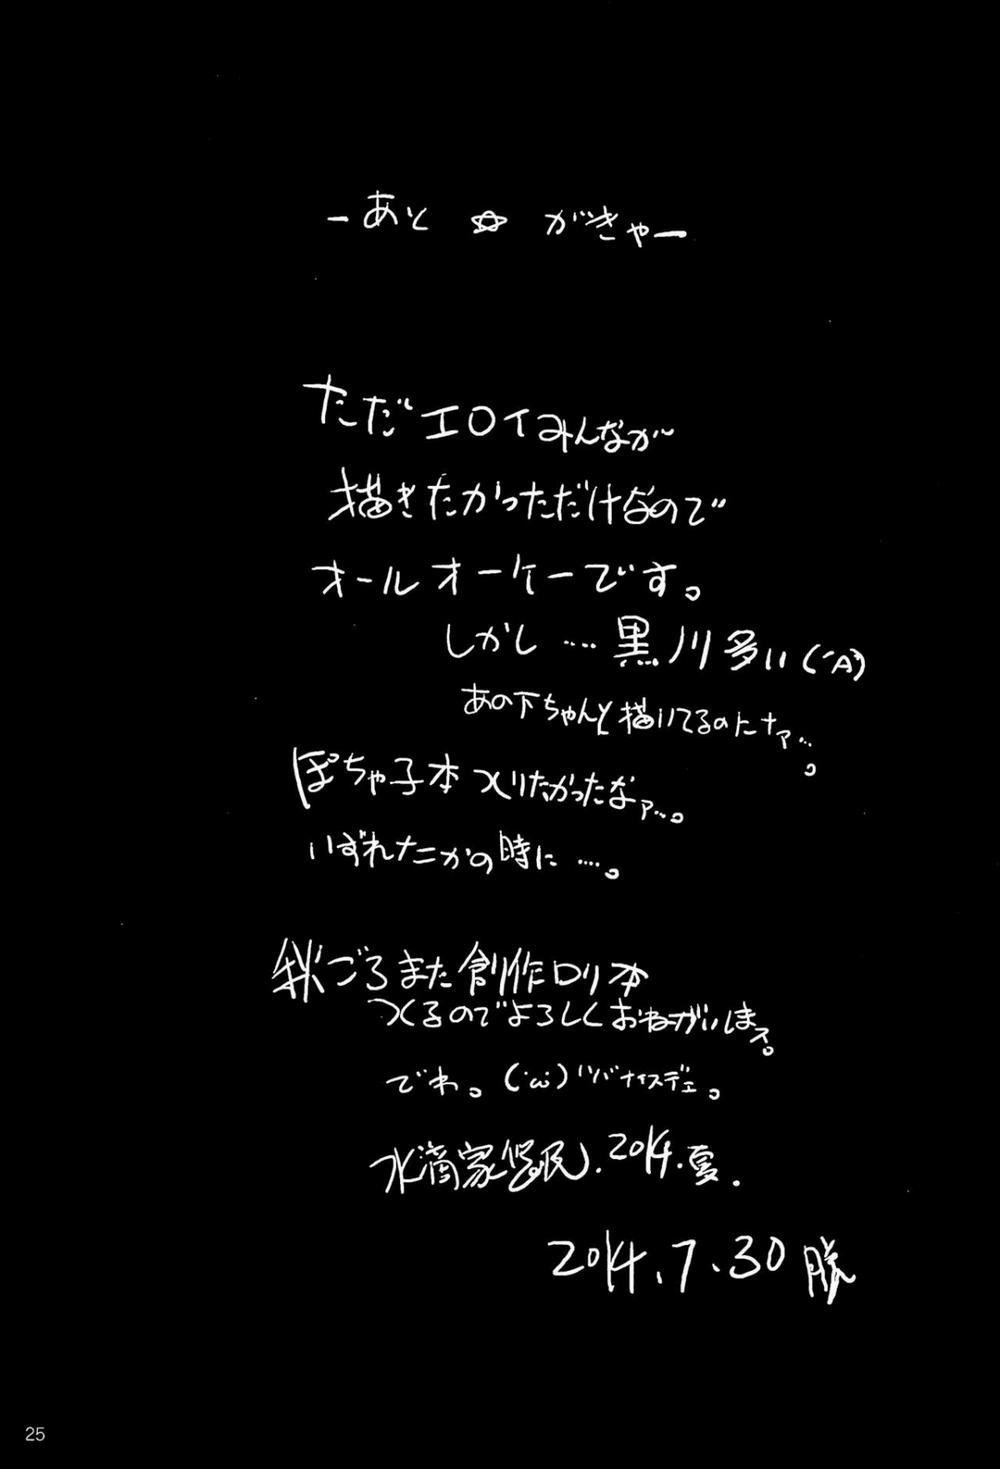 ーあと☆がきゃー
ただエロイみんなが
描きたかっただけなので
オールオーケーです。
しかし‥‥黒川多い(´A`)
あの下ちゃんと描いてるのにナァ…。
ぽちゃ子本つくりたかったなァ…。
いずれたこかの時に‥‥。
秋ごろまた創作ロリ本
つくるのでよろしくおねがいします。
でわ。(´ω`)ﾉｼ
水滴家 民. 2014.夏.
2014.7.30
25